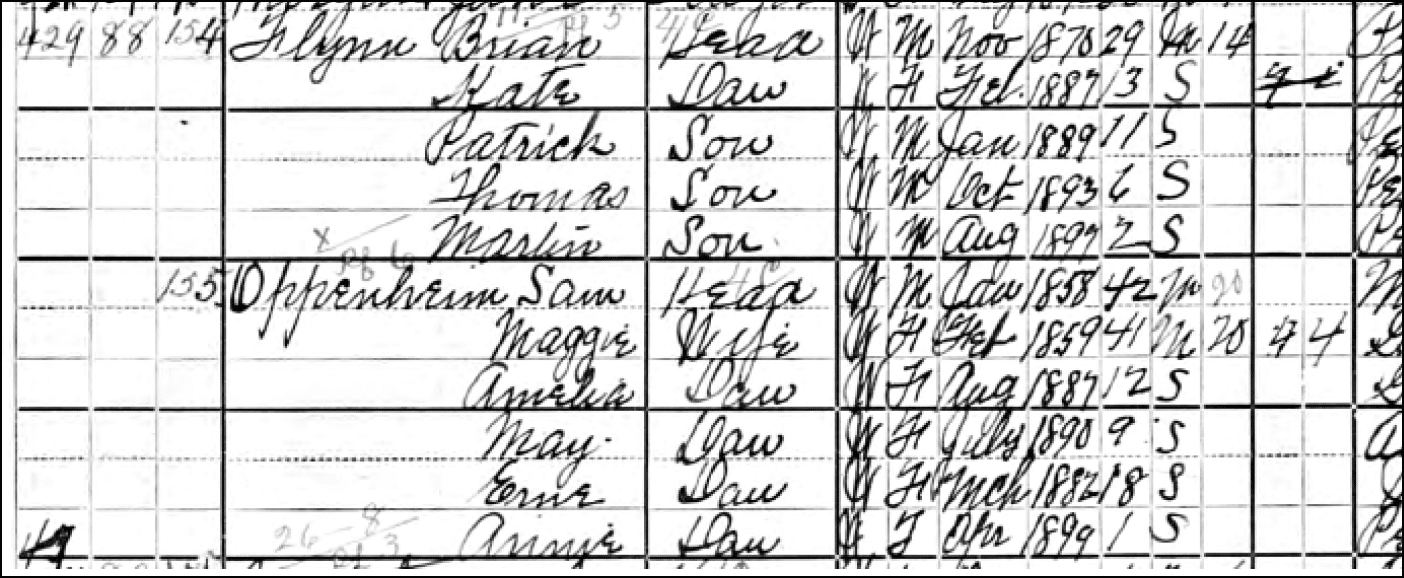 429 88 154 Flynn Brian Head W M Nov 1870 29 M 14
Kate Daw W F Feb. 1887 13 S
Patrick Son W M Jan 1889 11 S
Thomas Son W M Oct 1893 6 S
Martin Son W M Aug 1897 2 S
155 Oppenheim Sam Head W M Jan 1858 42 M 20
Maggie Wife W F Feb 1859 41 M 20 4 4
Amelia Daw W F Aug 1887 12 S
May Daw W F July 1890 9 S
Erne Daw W F Mch 1882 18 S
Annie Daw W F Apr 1899 1 S